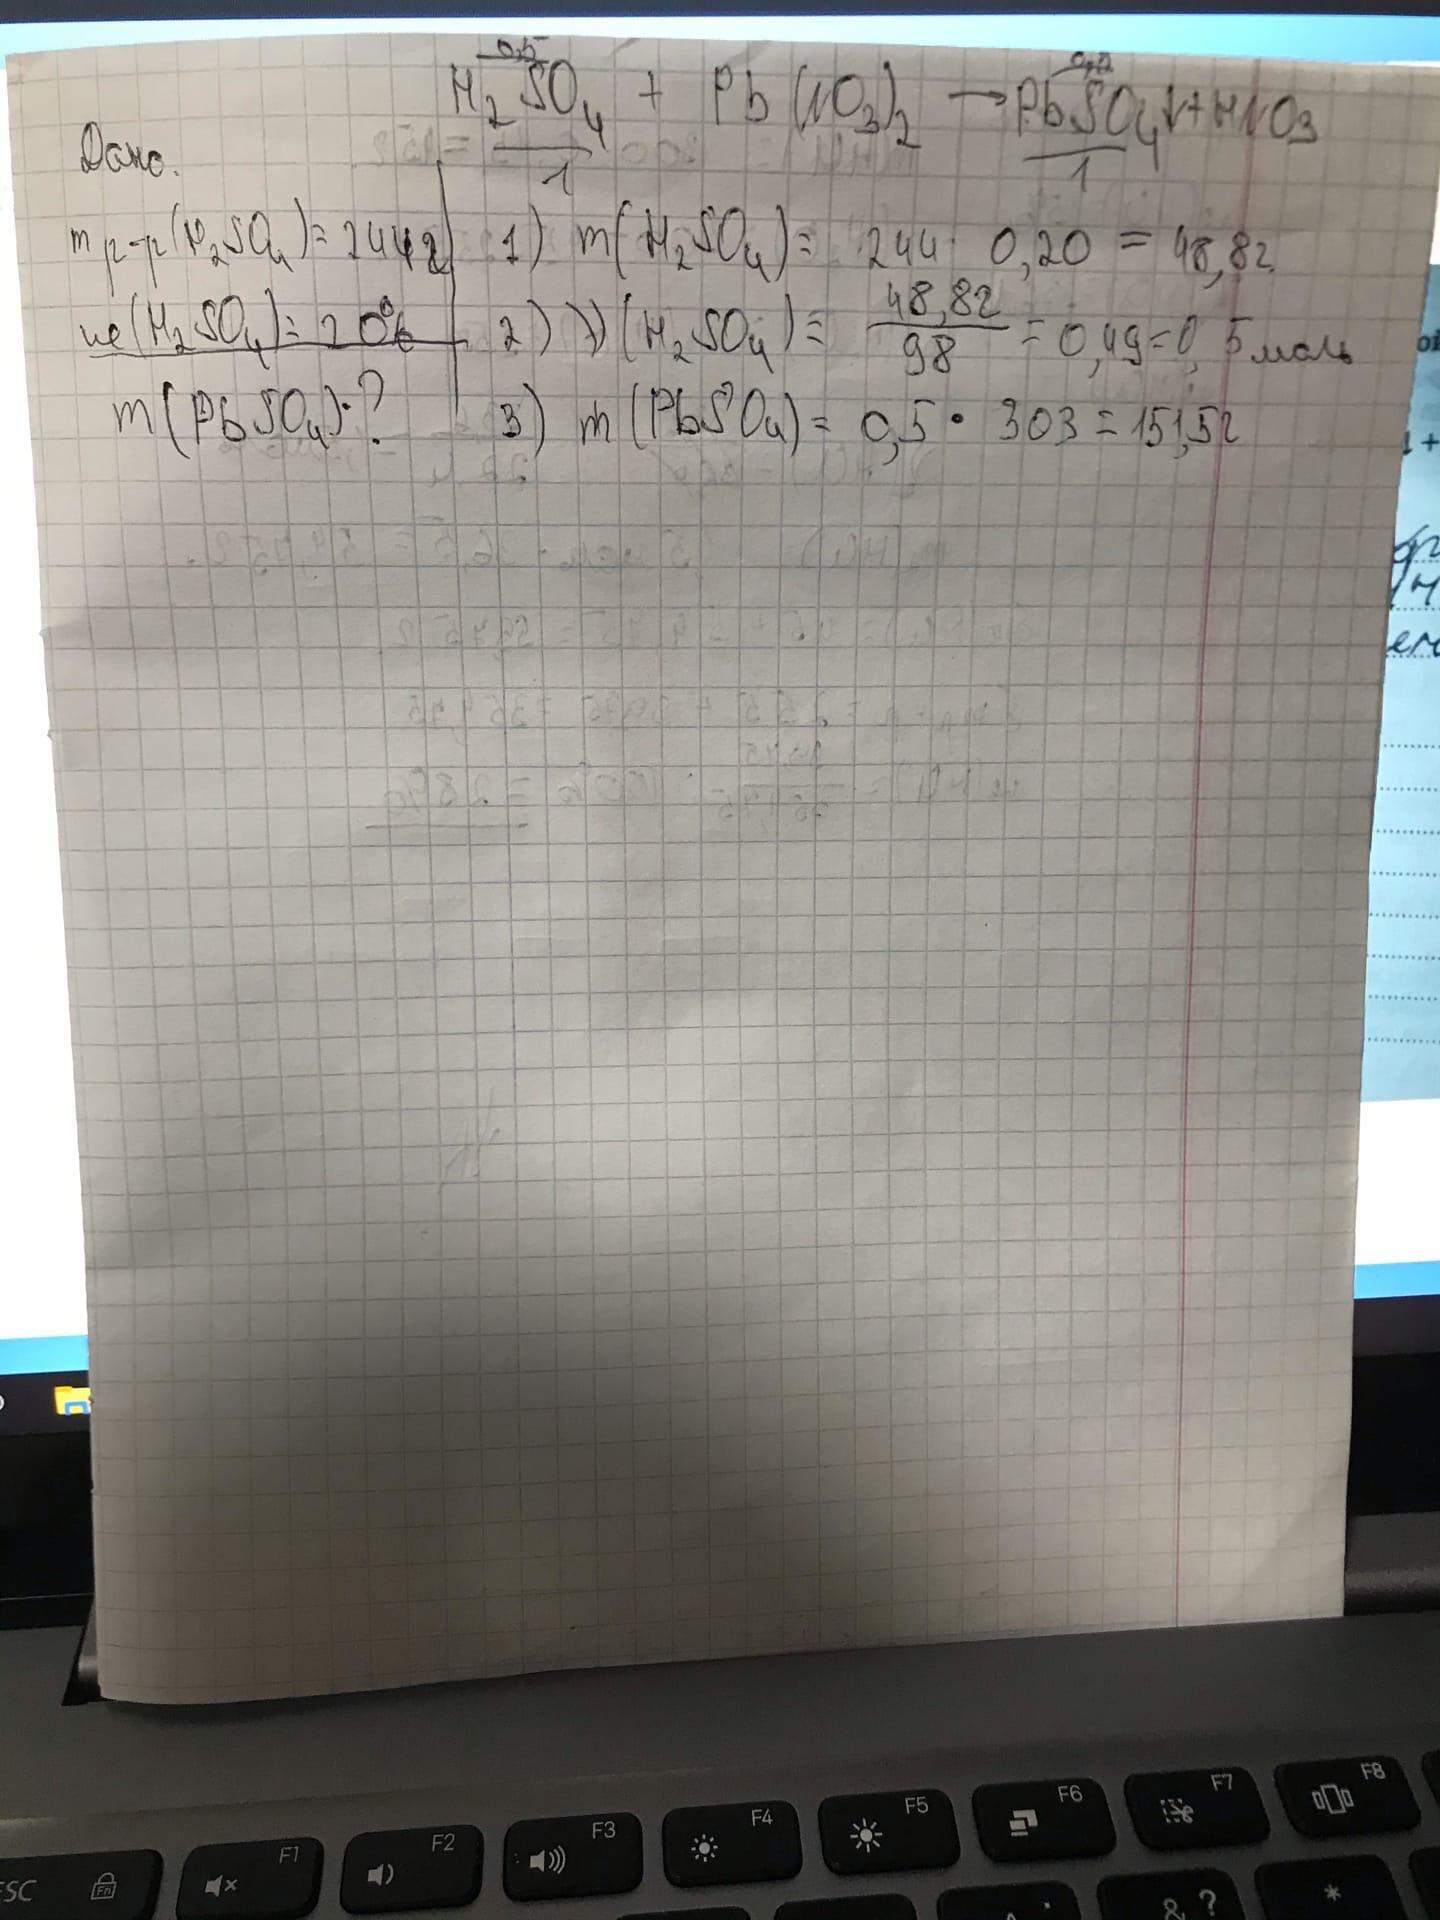 H2SO4 + Pb(NO3)2 → PbSO4↓ + HNO3
0,5
1
1
Дано.
m р-р(H2SO4) = 244г
ω(H2SO4) = 20%
m(PbSO4)-?
1) m(H2SO4) = 244 · 0,20 = 48,8г.
2) ν(H2SO4) = 48,8г / 98 = 0,49 = 0,5 моль
3) m(PbSO4) = 0,5 · 303 = 151,5г
ESC
Fn
F1
F2
F3
F4
F5
F6
F7
F8
& ?
*